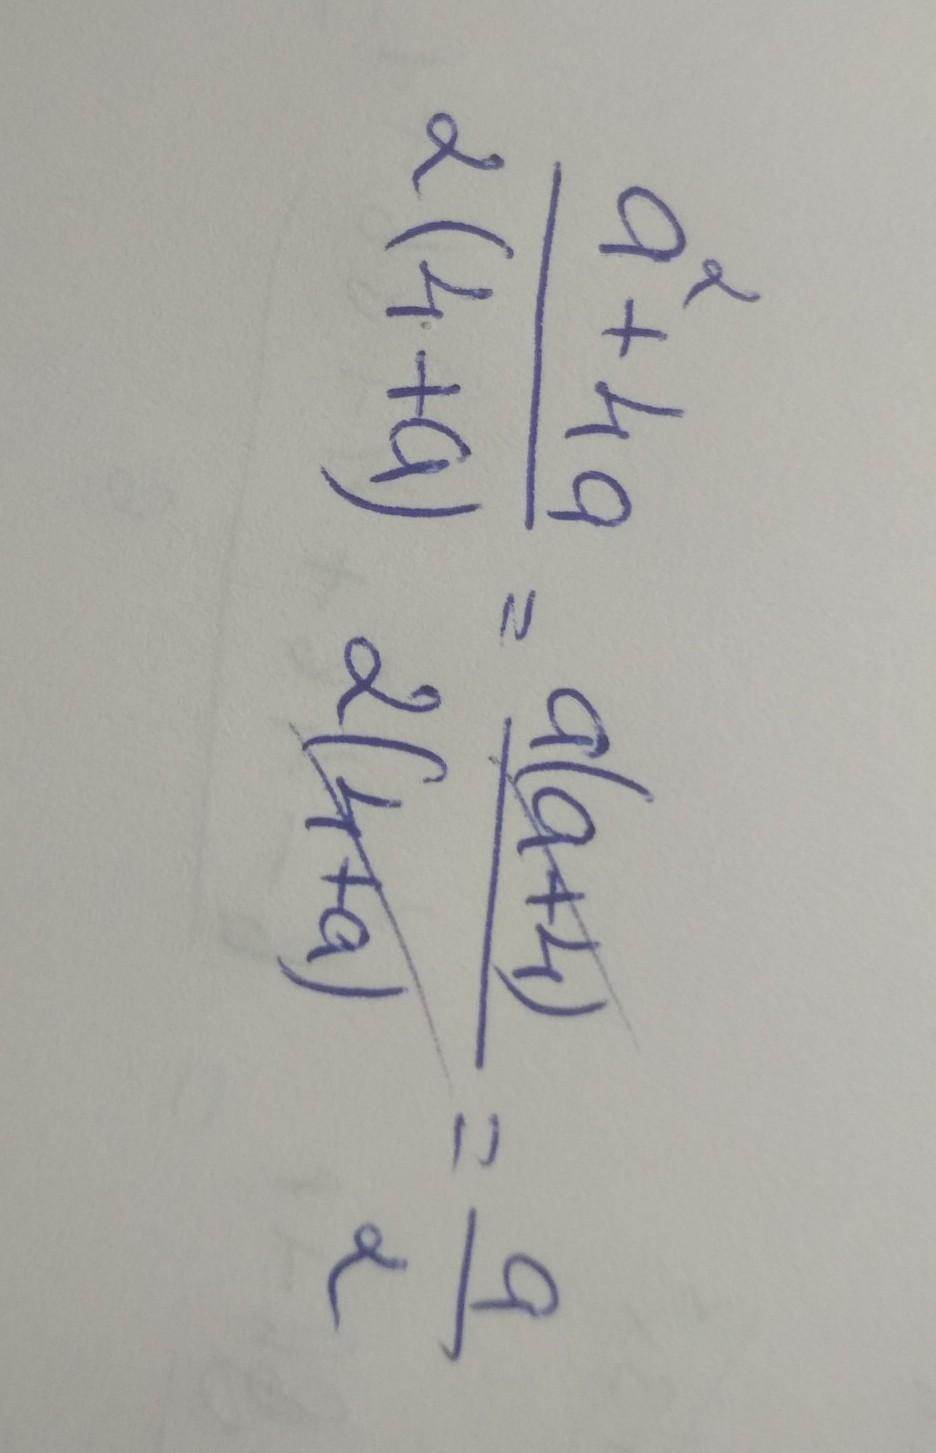 a² + 4a / 2(4 + a) = a(a+4) / 2(4+a) = a / 2